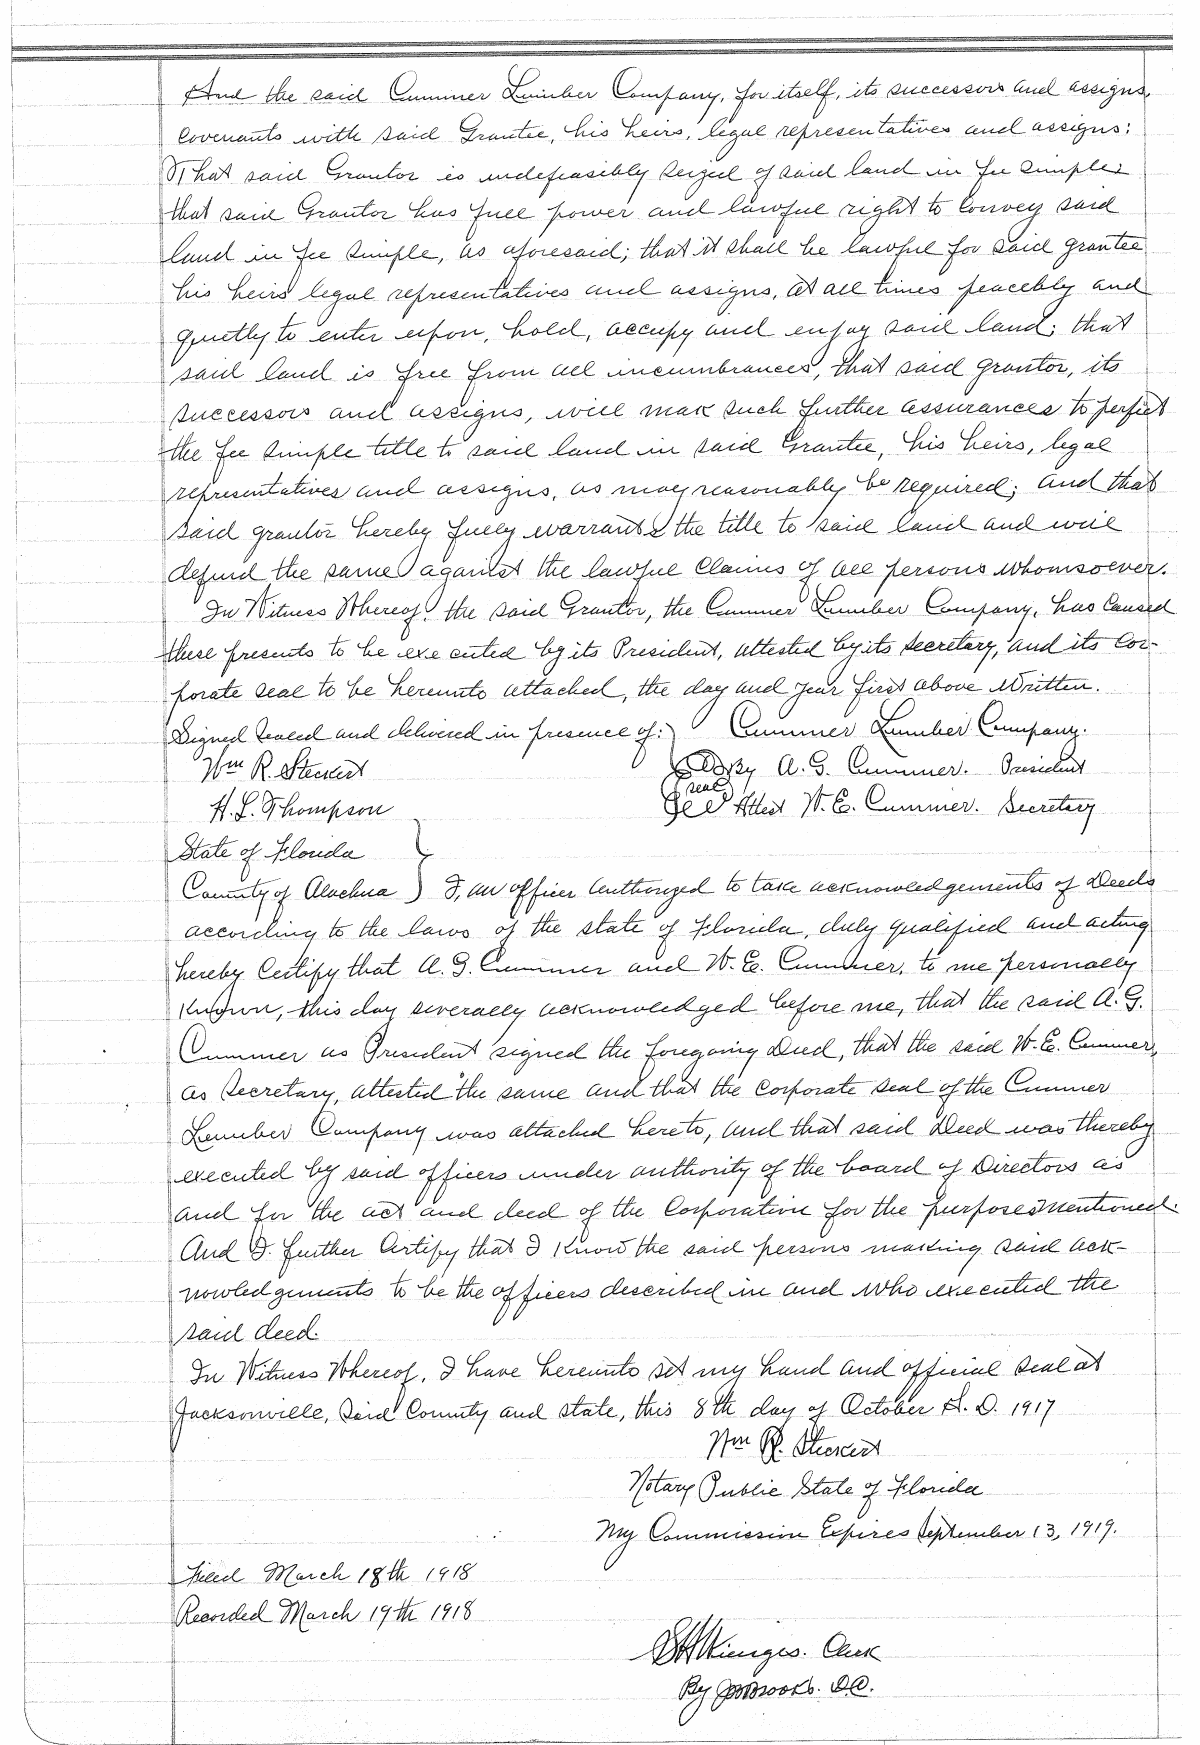 And the said Cummer Lumber Company, for itself, its successors and assigns,
covenants with said Grantee, his heirs, legal representatives and assigns:
That said Grantor is indefeasibly seized of said land in fee simple;
that said Grantor has full power and lawful right to convey said
land in fee simple, as aforesaid; that it shall be lawful for said grantee
his heirs legal representatives and assigns, at all times peacebly and
quietly to enter upon, hold, occupy and enjoy said land; that
said land is free from all incumbrances, that said grantor, its
successors and assigns, will mak such further assurances to perfect
the fee simple title to said land in said Grantee, his heirs, legal
representatives and assigns, as may reasonably be required; and that
said grantor hereby fully warrants the title to said land and will
defend the same against the lawful claims of all persons whomsoever.
In Witness Whereof, the said Grantor, the Cummer Lumber Company, has caused
these presents to be executed by its President, attested by its secretary, and its Cor-
porate seal to be hereunto attached, the day and year first above written.
Signed Sealed and delivered in presence of:) Cummer Lumber Company.
Wm R. Steckert By A. G. Cummer. President
seal
H. L. Thompson Attest W. E. Cummer. Secretary
State of Florida )
County of Alachua ) I, an officer authorized to take acknowledgements of Deeds
according to the laws of the state of Florida, duly qualified and acting
hereby Certify that A. G. Cummer and W. E. Cummer, to me personally
known, this day severally acknowledged before me, that the said A. G.
Cummer as President signed the foregoing Deed, that the said W. E. Cummer,
as Secretary, attested the same and that the corporate seal of the Cummer
Lumber Company was attached hereto, and that said Deed was thereby
executed by said officers under authority of the board of Directors as
and for the act and deed of the Corporation for the purposes mentioned.
And I further Certify that I know the said persons making said ack-
nowledgements to be the officers described in and who executed the
said deed.
In Witness Whereof, I have hereunto set my hand and official seal at
Jacksonville, Said County and state, this 8th day of October A. D. 1917
Wm R. Steckert
Notary Public State of Florida
My Commission Expires September 13, 1919.
Filed March 18th 1918
Recorded March 19th 1918
Wienges. Clerk
By Brooks. D.C.